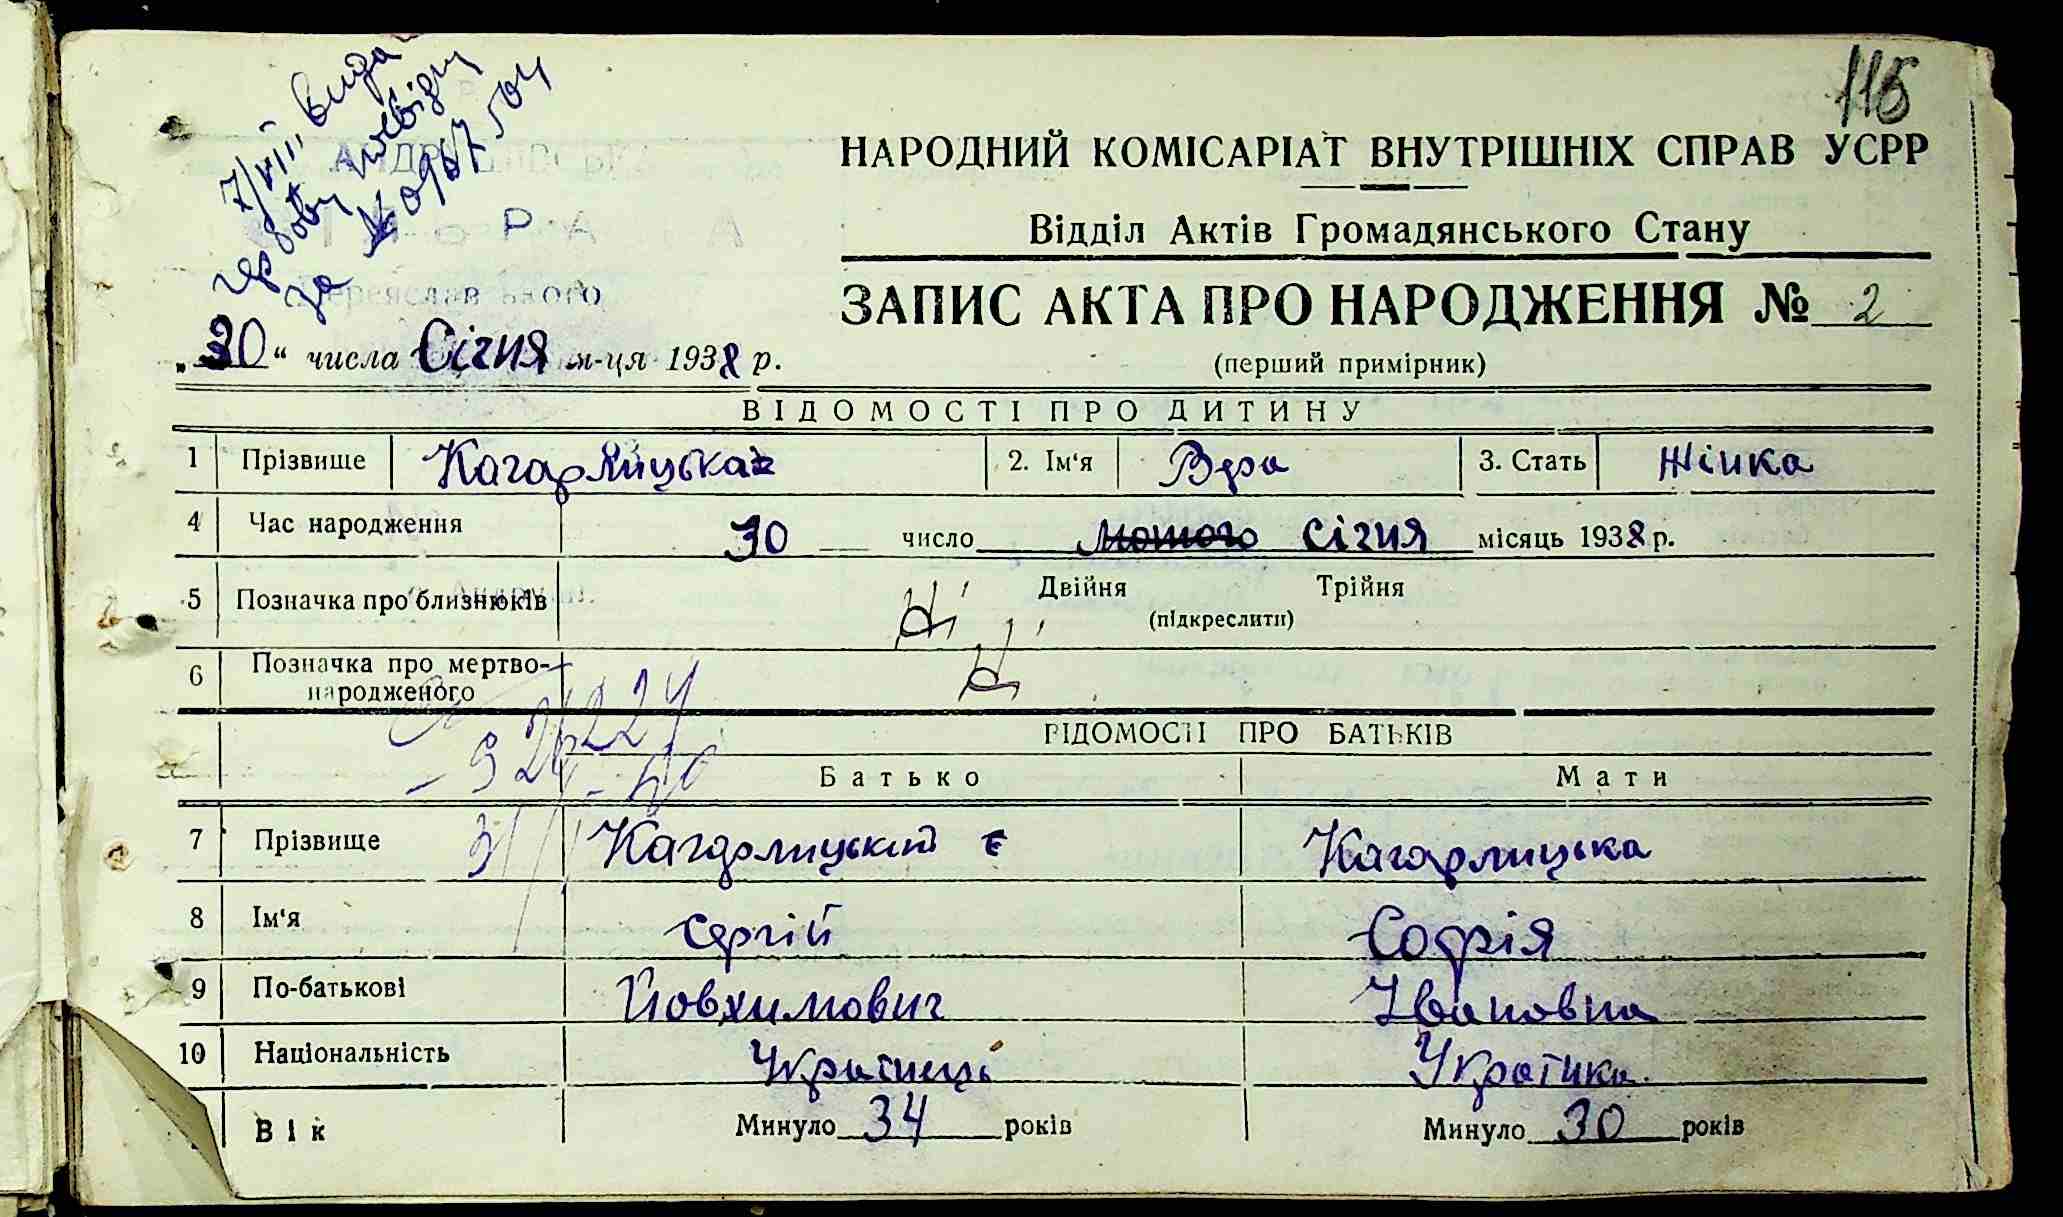 7/VIII вида
за № 0967504
115
НАРОДНИЙ КОМІСАРІАТ ВНУТРІШНІХ СПРАВ УСРР
Відділ Актів Громадянського Стану
ЗАПИС АКТА ПРО НАРОДЖЕННЯ № 2
(перший примірник)
„30“ числа Січня м-ця 1938 р.
ВІДОМОСТІ ПРО ДИТИНУ
1 Прізвище Кагарлицька 2. Ім'я Вера 3. Стать Жінка
4 Час народження 30 число лютого січня місяць 1938 р.
5 Позначка про близнюків Ні Двійня Трійня
(підкреслити)
6 Позначка про мертво-
народженого Ні
ВІДОМОСТІ ПРО БАТЬКІВ
Батько Мати
7 Прізвище Кагарлицький Кагарлицька
8 Ім'я Сергій Софія
9 По-батькові Йовхимович Ивановна
10 Національність Українець Українка
Вік Минуло 34 років Минуло 30 років